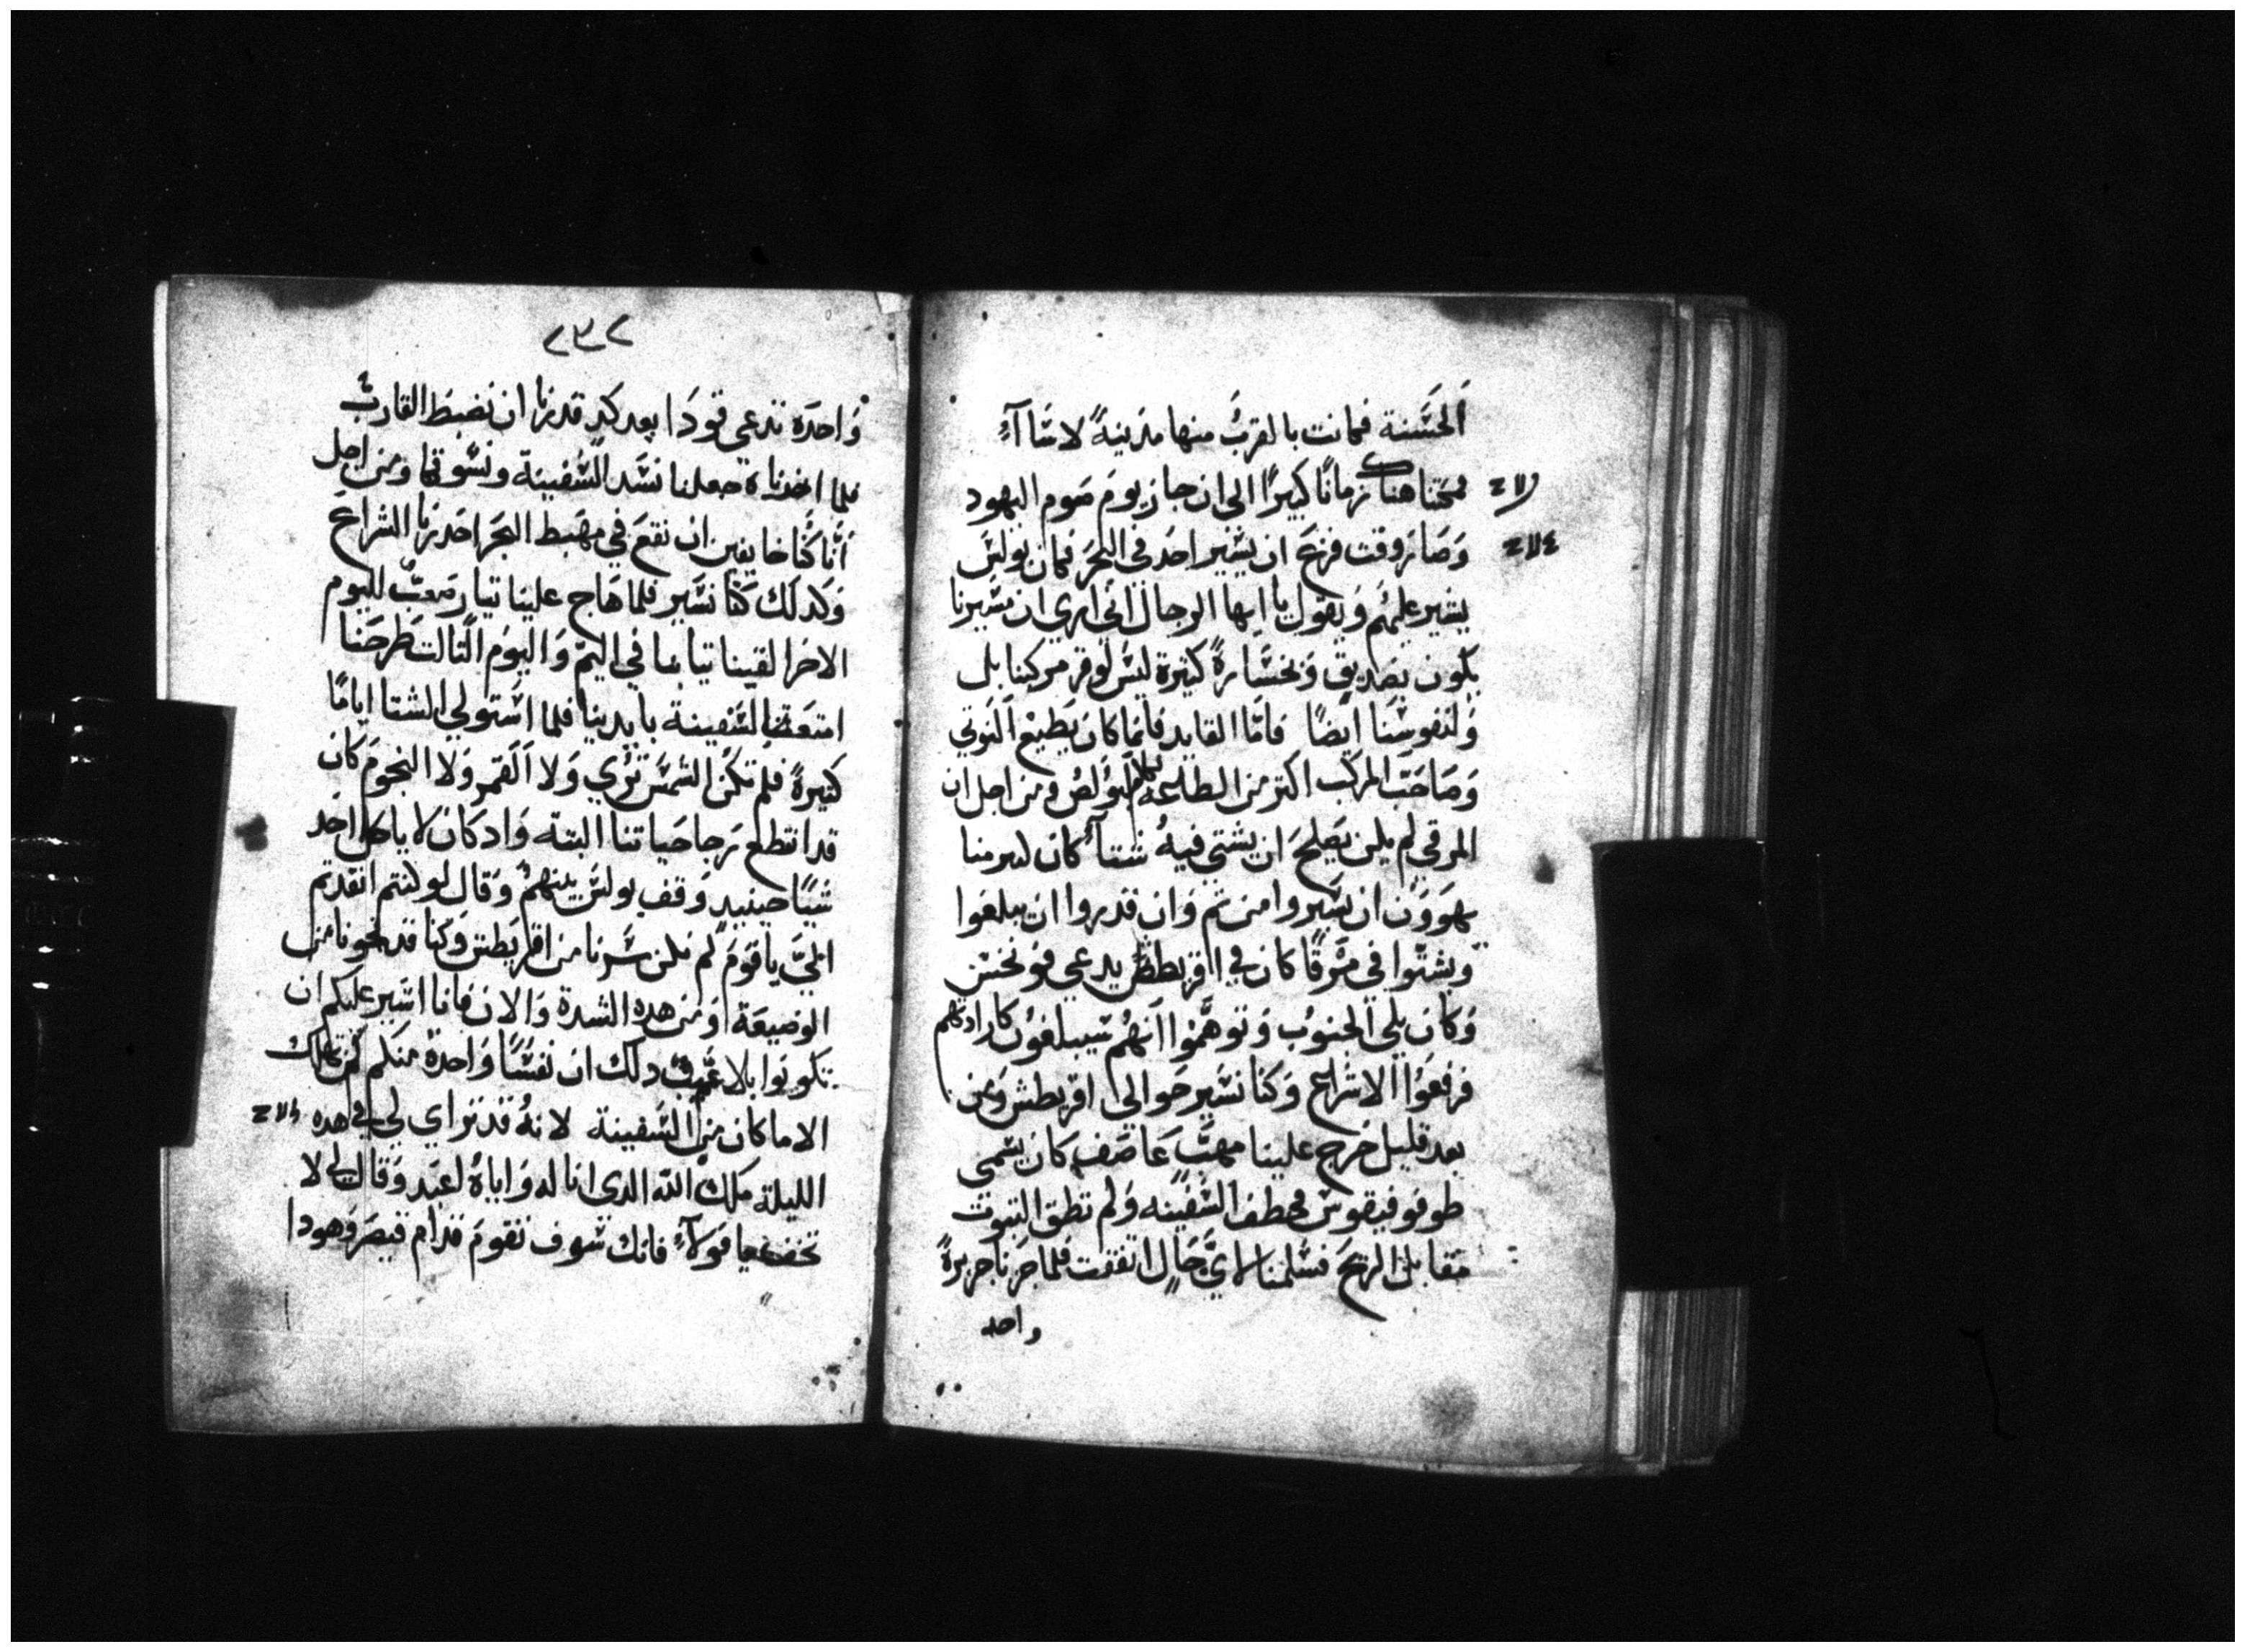 اَلحسَنة فكانت بالقربُ منها مدَينةً لاسَاآءٍ
فمكثنا هناك زمانًا كبيرًا الى ان جاز يومَ صَوم اليهود
وَصَار وقت فزعَ ان يسَير احَد في البحَر فكان بولسَ
يشير عليهُم وَيقول يا ايها الرجال اني اري ان مسَيرنا
يكون بضديقٍ وَبخسَارةً كثيرة ليسَ لوقر مركبنا بل
وَلنفوسَنا ايضًا فامَا القايد فانما كان يَطيع النَوتي
وَصَاحَبَ المركَب اكتر من الطاعة لكلام بَولصُ ومن اجل ان
المرقي لم يكن يَصلحَ ان يشتي فيهُ شتآءً كان كثير منا
يهوَوَن ان يسَيروا من تم وَان قدروا ان يبلغوا
ويشتَوا في مَرقًا كان في اقريطش يدعي فونخسَ
وَكان يلي الجنوبُ وَتوهَّموا اَنهُم سَيبلغوُن كارادتهم
فرفعَوُا الاشراع وَكنا نسَير حَوالي اقريطش وَمن
بعد قليل خرج علينا مهبَّ عَاصَف كان يسَمى
طوفوفيقوسَ فخطف السَفينه وَلم تطق التبوت
مقابل الريحَ فسَلمنا لايَّ حَالٍ اتفقت فلما جَرنا جزيرةً
واحده
٢٣٢
وَاحدَه تدعي قودَا بعد كدٍ قدرنا ان نضبطَ القاربُ
فلما اخدناه جعلنا نشَد السَفينة ونسَوقها ومن اجل
اَنَّا كُنا خايفين ان نقعَ في مهبَط البحَر احَدرنا الشراعَ
وَكدلك كَنا نسَير فلما هَاج علينا تيار صَعبٌ لليوم
الاخر القينا تياعنا في اليمّ وَاليوُم الثالث طرحَنا
امتعَة السَفينة بايدينا فلما اسَتولي الشتا ايامًا
كتيرةً فلم تكَن الشمسَ تؤري وَلا اَلقمر وَلا النجومَ كان
قد انقطع رجا حَياتنا البته وَاد كان لا ياكل احَد
شيًا حينيدٍ وَقف بولسَ بينهمُ وَقال لو كنتم انقدتم
اليَّ ياقومَ لم نكن سَرنا من اقريَطش وَكنا قد نجونا من
الوضيعَة اوَ من هده الشدة وَالان فانا اشَير عليكم ان
تكونوا بلا غم دلك ان نفسًا وَاحدةُ منكم لن تهلك
الا ماكان من السَفينة لانهُ قدَ تراي لي في هده
الليلة ملاك الله الدي انا له وَاياهُ اعبَد وَقال لي لا
تخف يا فولآءٍ فانك سَوف تقومَ قدام قيصَر وَهودا